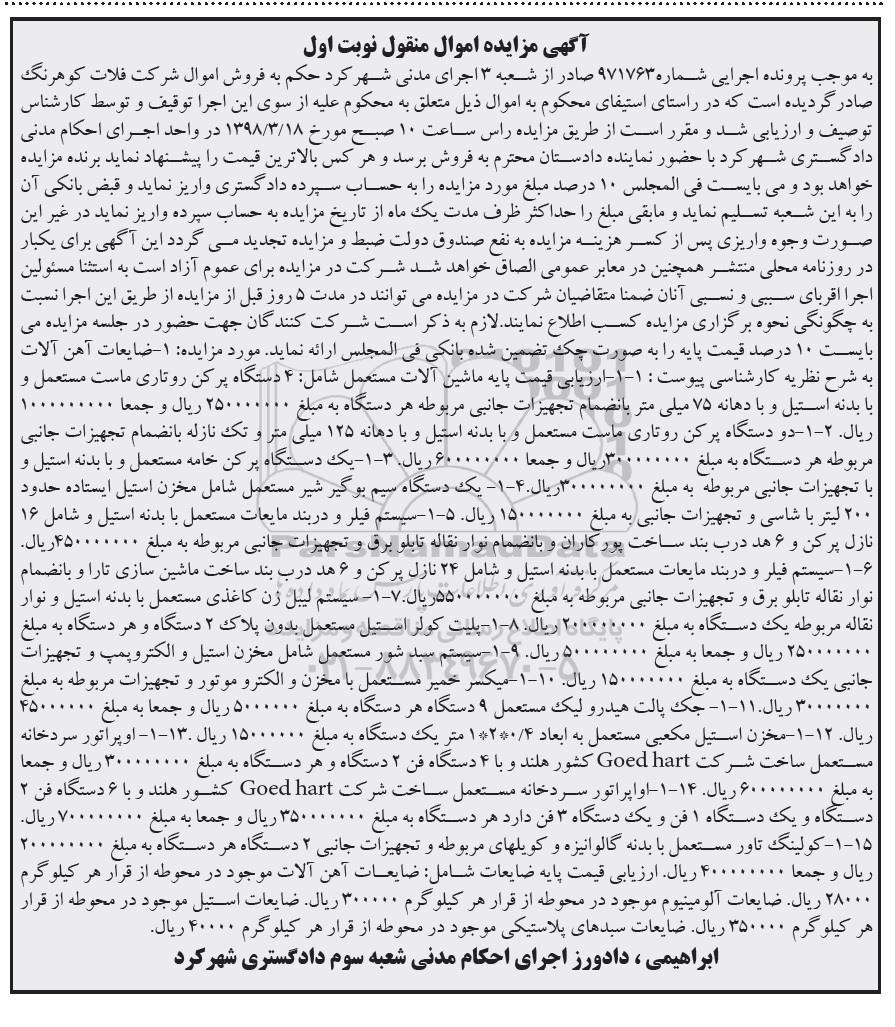 آگهی مزایده اموال منقول نوبت اول
به موجب پرونده اجرایی شماره۹۷۱۷۶۳ صادر از شعبه ۳ اجرای مدنی شهرکرد حکم به فروش اموال شرکت فلات کوهرنگ
صادر گردیده است که در راستای استیفای محکوم به اموال ذیل متعلق به محکوم علیه از سوی این اجرا توقیف و توسط کارشناس
توصیف و ارزیابی شد و مقرر است از طریق مزایده راس ساعت ۱۰ صبح مورخ ۱۳۹۸/۳/۱۸ در واحد اجرای احکام مدنی
دادگستری شهرکرد با حضور نماینده دادستان محترم به فروش برسد و هر کس بالاترین قیمت را پیشنهاد نماید برنده مزایده
خواهد بود و می بایست فی المجلس ۱۰ درصد مبلغ مورد مزایده را به حساب سپرده دادگستری واریز نماید و قبض بانکی آن
را به این شعبه تسلیم نماید و مابقی مبلغ را حداکثر ظرف مدت یک ماه از تاریخ مزایده به حساب سپرده واریز نماید در غیر این
صورت وجوه واریزی پس از کسر هزینه مزایده به نفع صندوق دولت ضبط و مزایده تجدید می گردد این آگهی برای یکبار
در روزنامه محلی منتشر همچنین در معابر عمومی الصاق خواهد شد شرکت در مزایده برای عموم آزاد است به استثنا مسئولین
اجرا اقربای سببی و نسبی آنان ضمنا متقاضیان شرکت در مزایده می توانند در مدت ۵ روز قبل از مزایده از طریق این اجرا نسبت
به چگونگی نحوه برگزاری مزایده کسب اطلاع نمایند.لازم به ذکر است شرکت کنندگان جهت حضور در جلسه مزایده می
بایست ۱۰ درصد قیمت پایه را به صورت چک تضمین شده بانکی فی المجلس ارائه نماید. مورد مزایده: ۱-ضایعات آهن آلات
به شرح نظریه کارشناسی پیوست : ۱-۱-ارزیابی قیمت پایه ماشین آلات مستعمل شامل: ۴ دستگاه پرکن روتاری ماست مستعمل و
با بدنه استیل و با دهانه ۷۵ میلی متر بانضمام تجهیزات جانبی مربوطه هر دستگاه به مبلغ ۲۵۰۰۰۰۰۰۰ ریال و جمعا ۱۰۰۰۰۰۰۰۰۰
ریال. ۲-۱-دو دستگاه پرکن روتاری ماست مستعمل و با بدنه استیل و با دهانه ۱۲۵ میلی متر و تک نازله بانضمام تجهیزات جانبی
مربوطه هر دستگاه به مبلغ ۳۰۰۰۰۰۰۰۰ریال و جمعا ۶۰۰۰۰۰۰۰۰ ریال. ۳-۱-یک دستگاه پرکن خامه مستعمل و با بدنه استیل و
با تجهیزات جانبی مربوطه به مبلغ ۳۰۰۰۰۰۰۰۰ریال.۴-۱- یک دستگاه سیم بوگیر شیر مستعمل شامل مخزن استیل ایستاده حدود
۲۰۰ لیتر با شاسی و تجهیزات جانبی به مبلغ ۱۵۰۰۰۰۰۰۰ ریال. ۵-۱-سیستم فیلر و دربند مایعات مستعمل با بدنه استیل و شامل ۱۶
نازل پرکن و ۶ هد درب بند ساخت پورکاران و بانضمام نوار نقاله تابلو برق و تجهیزات جانبی مربوطه به مبلغ ۴۵۰۰۰۰۰۰۰ریال.
۶-۱-سیستم فیلر و دربند مایعات مستعمل با بدنه استیل و شامل ۲۴ نازل پرکن و ۶ هد درب بند ساخت ماشین سازی تارا و بانضمام
نوار نقاله تابلو برق و تجهیزات جانبی مربوطه به مبلغ ۵۵۰۰۰۰۰۰۰ریال.۷-۱-سیستم لیبل زن کاغذی مستعمل با بدنه استیل و نوار
نقاله مربوطه یک دستگاه به مبلغ ۲۰۰۰۰۰۰۰۰ ریال. ۸-۱-پلیت کولر استیل مستعمل بدون پلاک ۲ دستگاه و هر دستگاه به مبلغ
۲۵۰۰۰۰۰۰۰ ریال و جمعا به مبلغ ۵۰۰۰۰۰۰۰۰ ریال. ۹-۱-سیستم سبد شور مستعمل شامل مخزن استیل و الکتروپمپ و تجهیزات
جانبی یک دستگاه به مبلغ ۱۵۰۰۰۰۰۰۰ ریال. ۱۰-۱-میکسر خمیر مستعمل با مخزن و الکترو موتور و تجهیزات مربوطه به مبلغ
۳۰۰۰۰۰۰۰ ریال.۱۱-۱- جک پالت هیدرو لیک مستعمل ۹ دستگاه هر دستگاه به مبلغ ۵۰۰۰۰۰۰ ریال و جمعا به مبلغ ۴۵۰۰۰۰۰۰
ریال. ۱۲-۱-مخزن استیل مکعبی مستعمل به ابعاد ۰/۴*۲*۱ متر یک دستگاه به مبلغ ۱۵۰۰۰۰۰۰ ریال .۱۳-۱- اوپراتور سردخانه
مستعمل ساخت شرکت Goed hart کشور هلند و با ۴ دستگاه فن ۲ دستگاه و هر دستگاه به مبلغ ۳۰۰۰۰۰۰۰۰ ریال و جمعا
به مبلغ ۶۰۰۰۰۰۰۰۰ ریال. ۱۴-۱-اواپراتور سردخانه مستعمل ساخت شرکت Goed hart کشور هلند و با ۶ دستگاه فن ۲
دستگاه و یک دستگاه ۱ فن و یک دستگاه ۳ فن دارد هر دستگاه به مبلغ ۳۵۰۰۰۰۰۰۰ ریال و جمعا به مبلغ ۷۰۰۰۰۰۰۰۰ ریال.
۱۵-۱-کولینگ تاور مستعمل با بدنه گالوانیزه و کویلهای مربوطه و تجهیزات جانبی ۲ دستگاه هر دستگاه به مبلغ ۲۰۰۰۰۰۰۰۰
ریال و جمعا ۴۰۰۰۰۰۰۰۰ ریال. ارزیابی قیمت پایه ضایعات شامل: ضایعات آهن آلات موجود در محوطه از قرار هر کیلوگرم
۲۸۰۰۰ ریال. ضایعات آلومینیوم موجود در محوطه از قرار هر کیلوگرم ۳۰۰۰۰۰ ریال. ضایعات استیل موجود در محوطه از قرار
هر کیلوگرم ۳۵۰۰۰۰ ریال. ضایعات سبدهای پلاستیکی موجود در محوطه از قرار هر کیلوگرم ۴۰۰۰۰ ریال.
ابراهیمی ، دادورز اجرای احکام مدنی شعبه سوم دادگستری شهرکرد
ParsNamadData
پایگاه اطلاع رسانی مناقصه و مزایده
۰۲۱-۸۸۳۴۹۶۷۰-۵